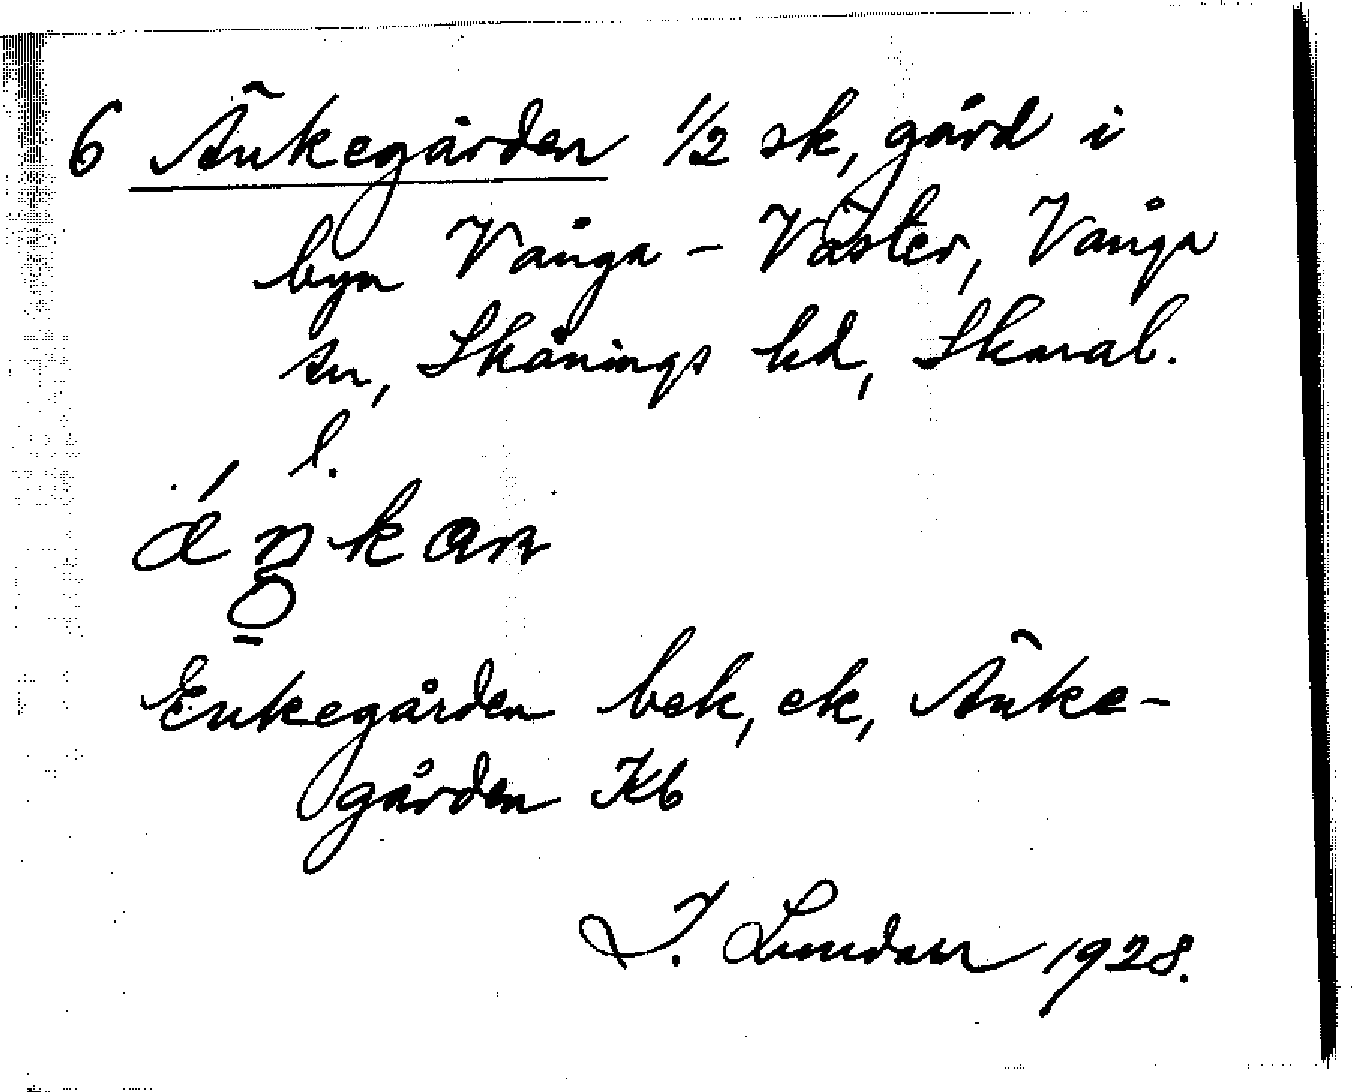 6 Änkegården 1/2 sk, gård i
byn Vånga - Väster, Vånga
sn, Skånings hd, Skarab.
l.
Enkegården bek, ek, Änke-
gården Kb
I. Lundahl 1928.